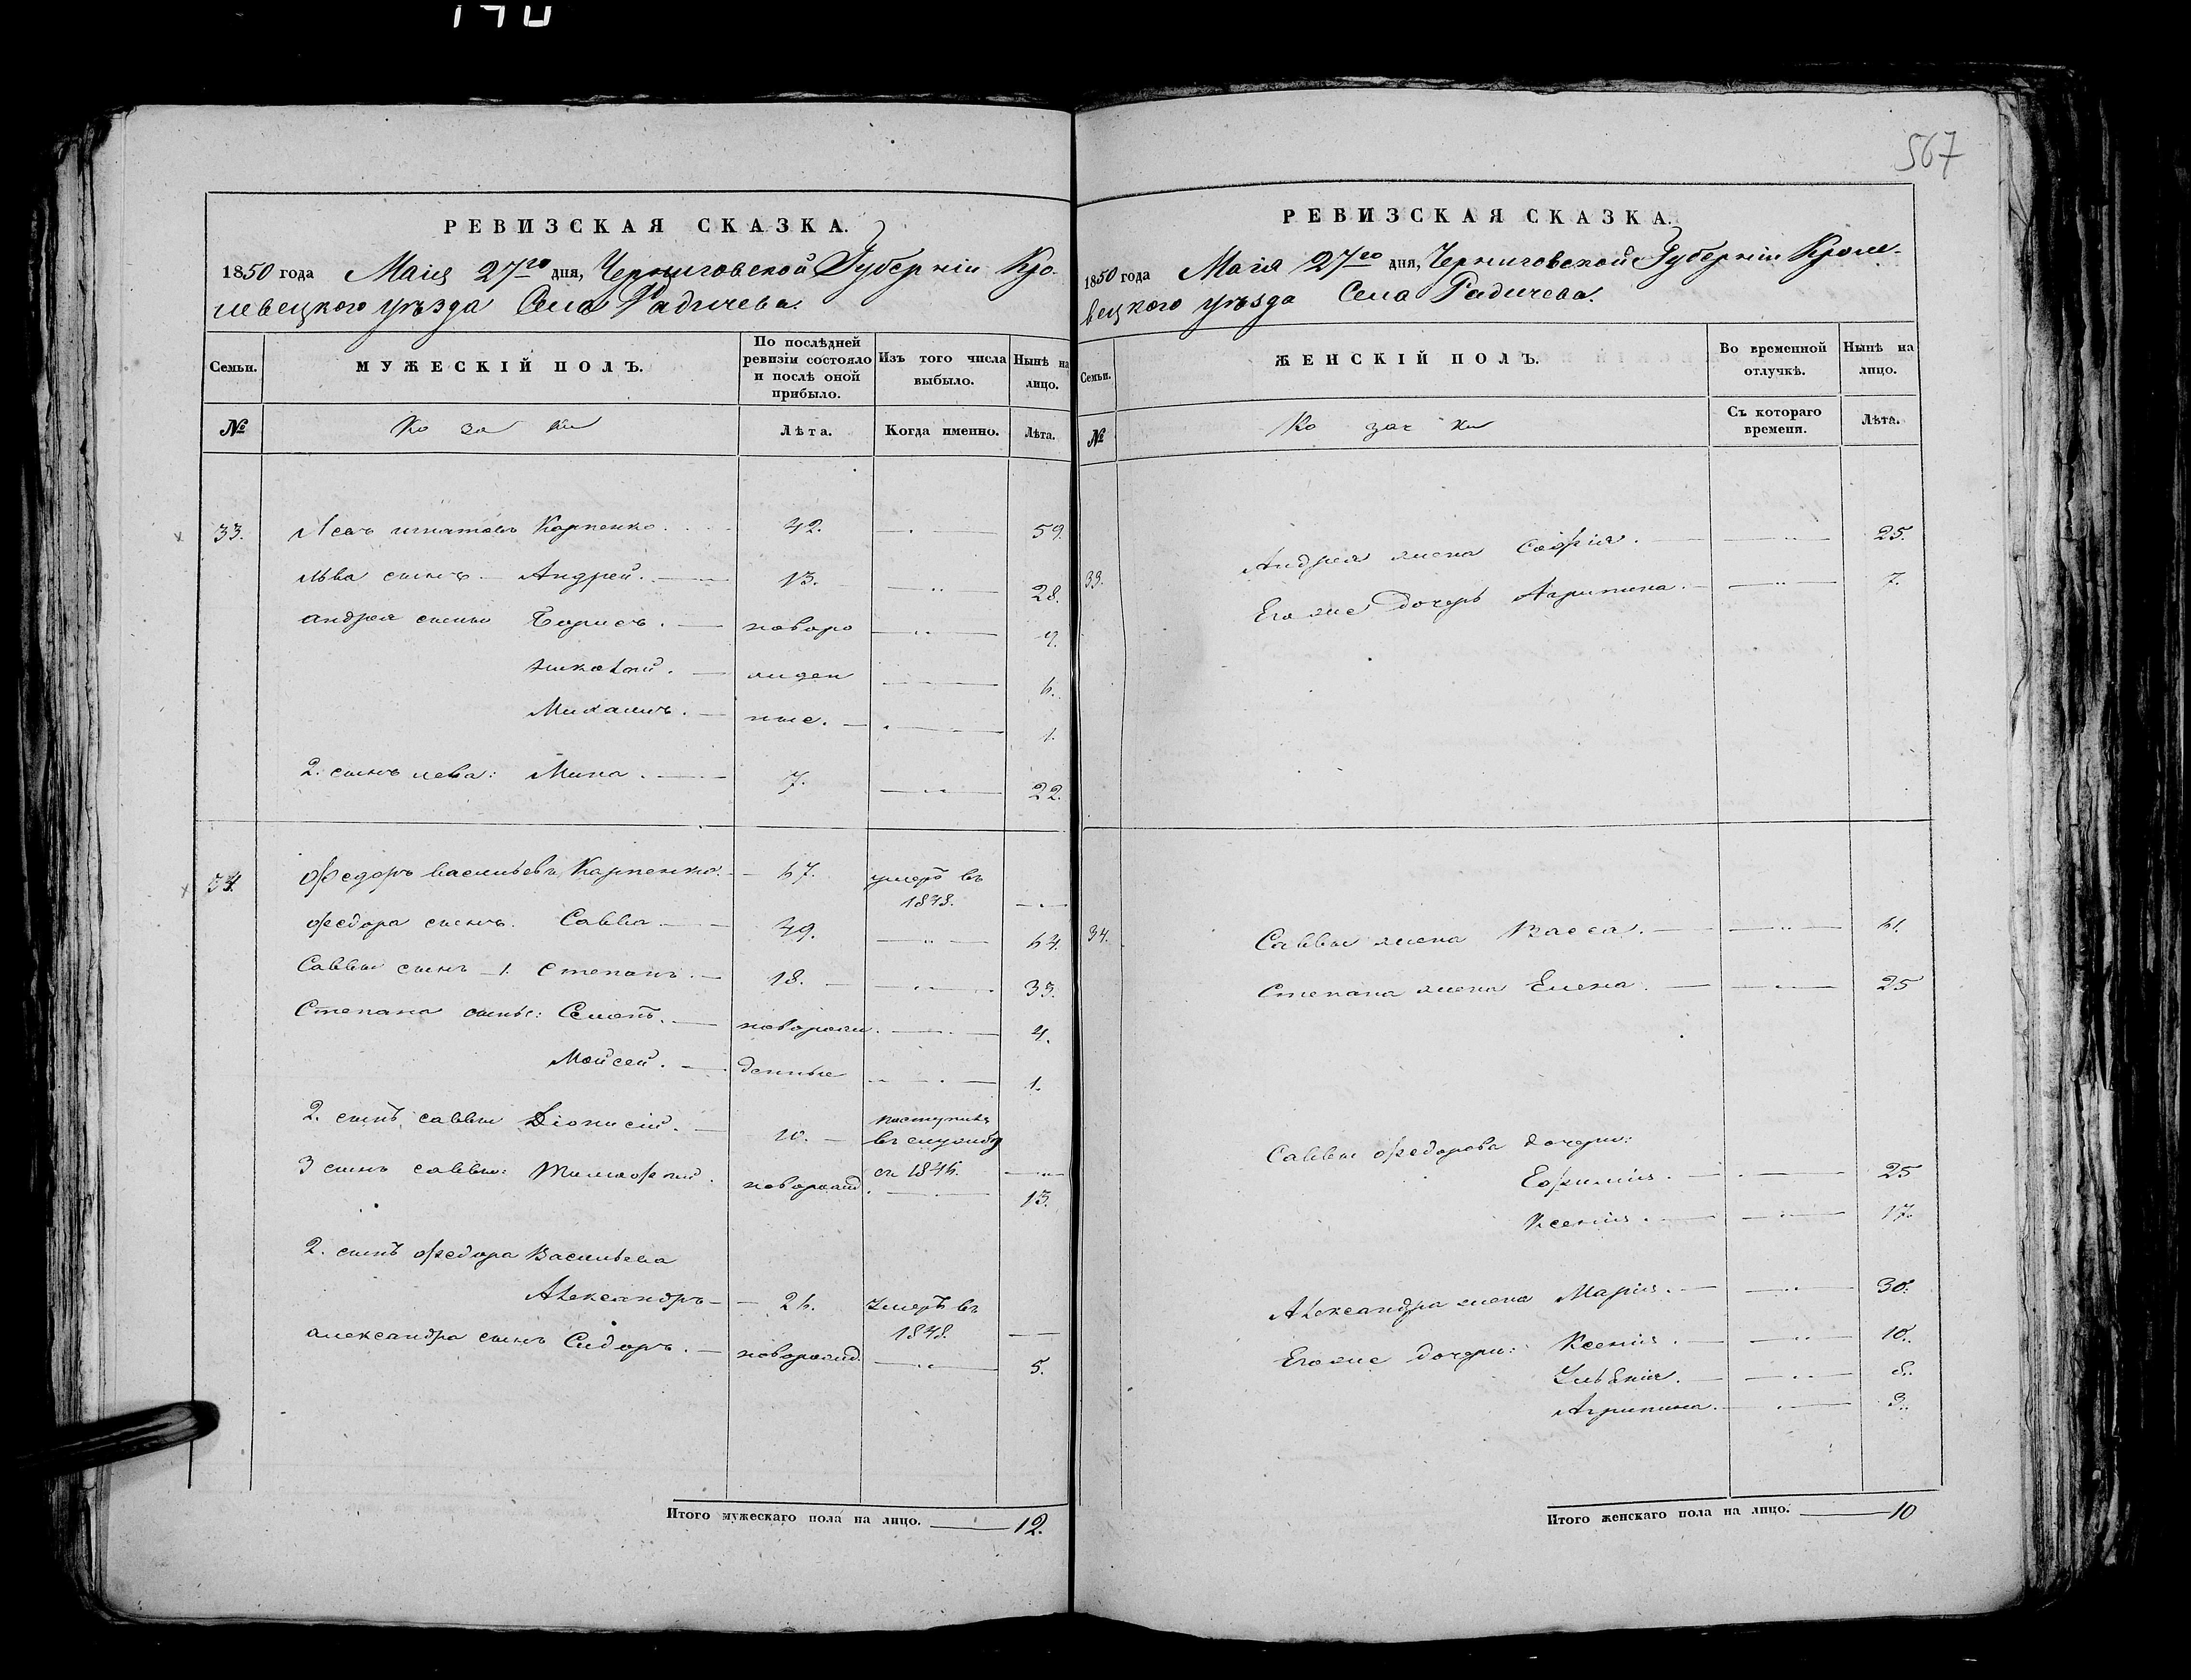 567
РЕВИЗСКАЯ СКАЗКА.
1850 года Маія 27го дня, Черниговской Губерніи Кро-
левецкого уѣзда Села Радичева.
Семьи.
МУЖЕСКІЙ ПОЛЪ.
По послѣдней ревизіи состояло и послѣ оной прибыло.
Изъ того числа выбыло.
Нынѣ на лицо.
№
Козаки
Лѣта.
Когда именно.
Лѣта.
33. Левъ Игнатовъ Карпенко. 42. 59.
Льва сынъ Андрей. 13. 28.
Андрея сыны Борисъ. новоро 9.
Николай. жден 6.
Михаилъ. ные. 1.
2. сынъ Лева: Мина. 7. 22.
34. Федоръ Васильевъ Карпенко. 67. умеръ въ
1848.
Федора сынъ. Савва 49. 64.
Саввы сынъ 1. Степанъ. 18. 33.
Степана сыны: Семенъ. новорож 4.
Мойсей. денные 1.
2. сынъ Саввы Діонисій. 10. поступилъ
въ службу
съ 1846.
3 сынъ Саввы: Тимофей. новорожд. 13.
2. сынъ Федора Васильева
Александръ 26. умеръ въ
1848.
Александра сынъ Сидоръ. новорожд. 5.
Итого мужескаго пола на лицо. 12.
РЕВИЗСКАЯ СКАЗКА.
1850 года Маія 27го дня, Черниговской Губерніи Кроле-
вецкого уѣзда Села Радичева.
Семьи.
ЖЕНСКІЙ ПОЛЪ.
Во временной отлучкѣ.
Нынѣ на лицо.
№
Козачки
Съ котораго времени.
Лѣта.
33. Андрея жена Софія. 25.
Его же дочерь Агрипина. 7.
34. Саввы жена Васса. 61.
Степана жена Елена. 25
Саввы Федорова дочери:
Ефимія. 25
Ксенія. 17.
Александра жена Марія. 30.
Его же дочери: Ксенія. 10.
Ульянія. 8.
Агрипина. 3.
Итого женскаго пола на лицо. 10